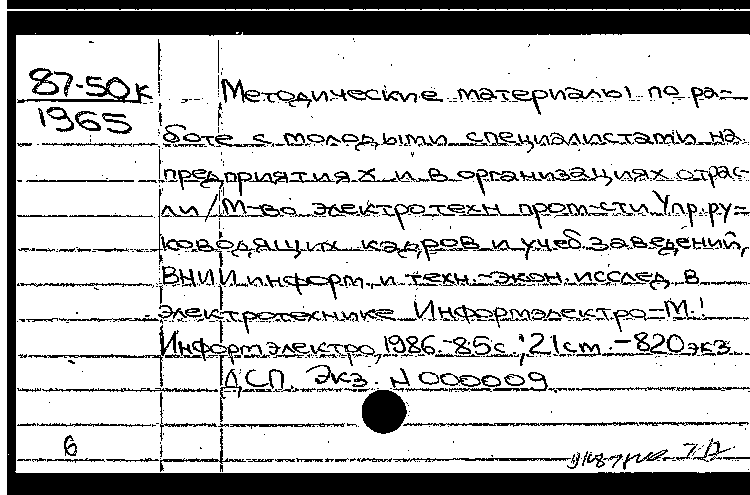 87-50к
1965
Методические материалы по ра-
боте с молодыми специалистами на
предприятиях и в организациях отрас-
ли/М-во электротехн пром-сти Упр. ру-
ководящих кадров и учеб. заведений,
ВНИИ информ. и техн.-экон. исслед. в
электротехнике Информэлектро-М.:
Информэлектро, 1986.-85с.; 21см.-820экз.
ДСП. Экз. N 000009
6